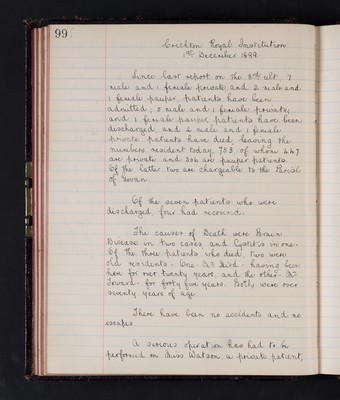 99
Crichton Royal Institution
1st December 1899.
Since last report on the 8th ult., 7
male and 1 female private, and 2 male and
1 female pauper patients have been
admitted; 5 male and 1 female private,
and 1 female pauper patients have been
discharged, and 2 male and 1 female
private patients have died, leaving the
numbers resident today 753, of whom 447
are private and 306 are pauper patients.
Of the latter two are chargeable to the Parish
of Govan.
Of the seven patients who were
discharged four had recovered.
The causes of Death were Brain
Disease in two cases, and Cystitis in one.
Of the three patients who died, two were
old residents - One - - having been
here for over twenty years, and the other - Mr
- for forty five years. Both were over
seventy years of age
There have been no accidents and no
escapes.
A serious operation has had to be
performed on Miss Watson, a private patient,